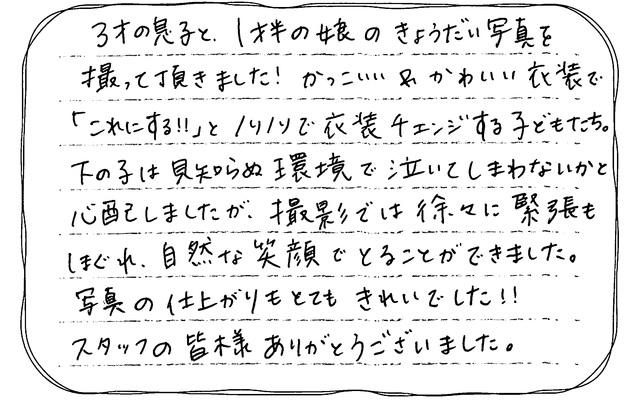 3才の息子と、1才半の娘のきょうだい写真を
撮って頂きました！かっこいい&かわいい衣装で
「これにする!!」とノリノリで衣装チェンジする子どもたち。
下の子は見知らぬ環境で泣いてしまわないかと
心配しましたが、撮影では徐々に緊張も
ほぐれ、自然な笑顔でとることができました。
写真の仕上がりもとてもきれいでした!!
スタッフの皆様ありがとうございました。